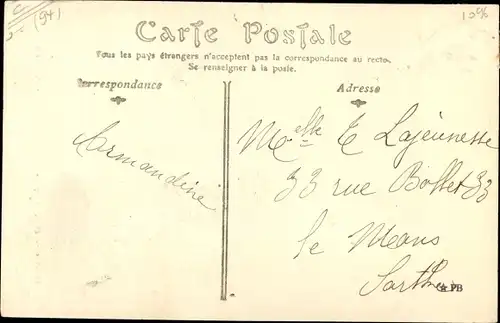 (94)
10%
Carte Postale
Tous les pays étrangers n'acceptent pas la correspondance au recto.
Se renseigner à la poste.
Correspondance
Adresse
Armandine
Melle E Lajeunesse
33 rue Bollet 33
Le Mans
Sarthe
PB